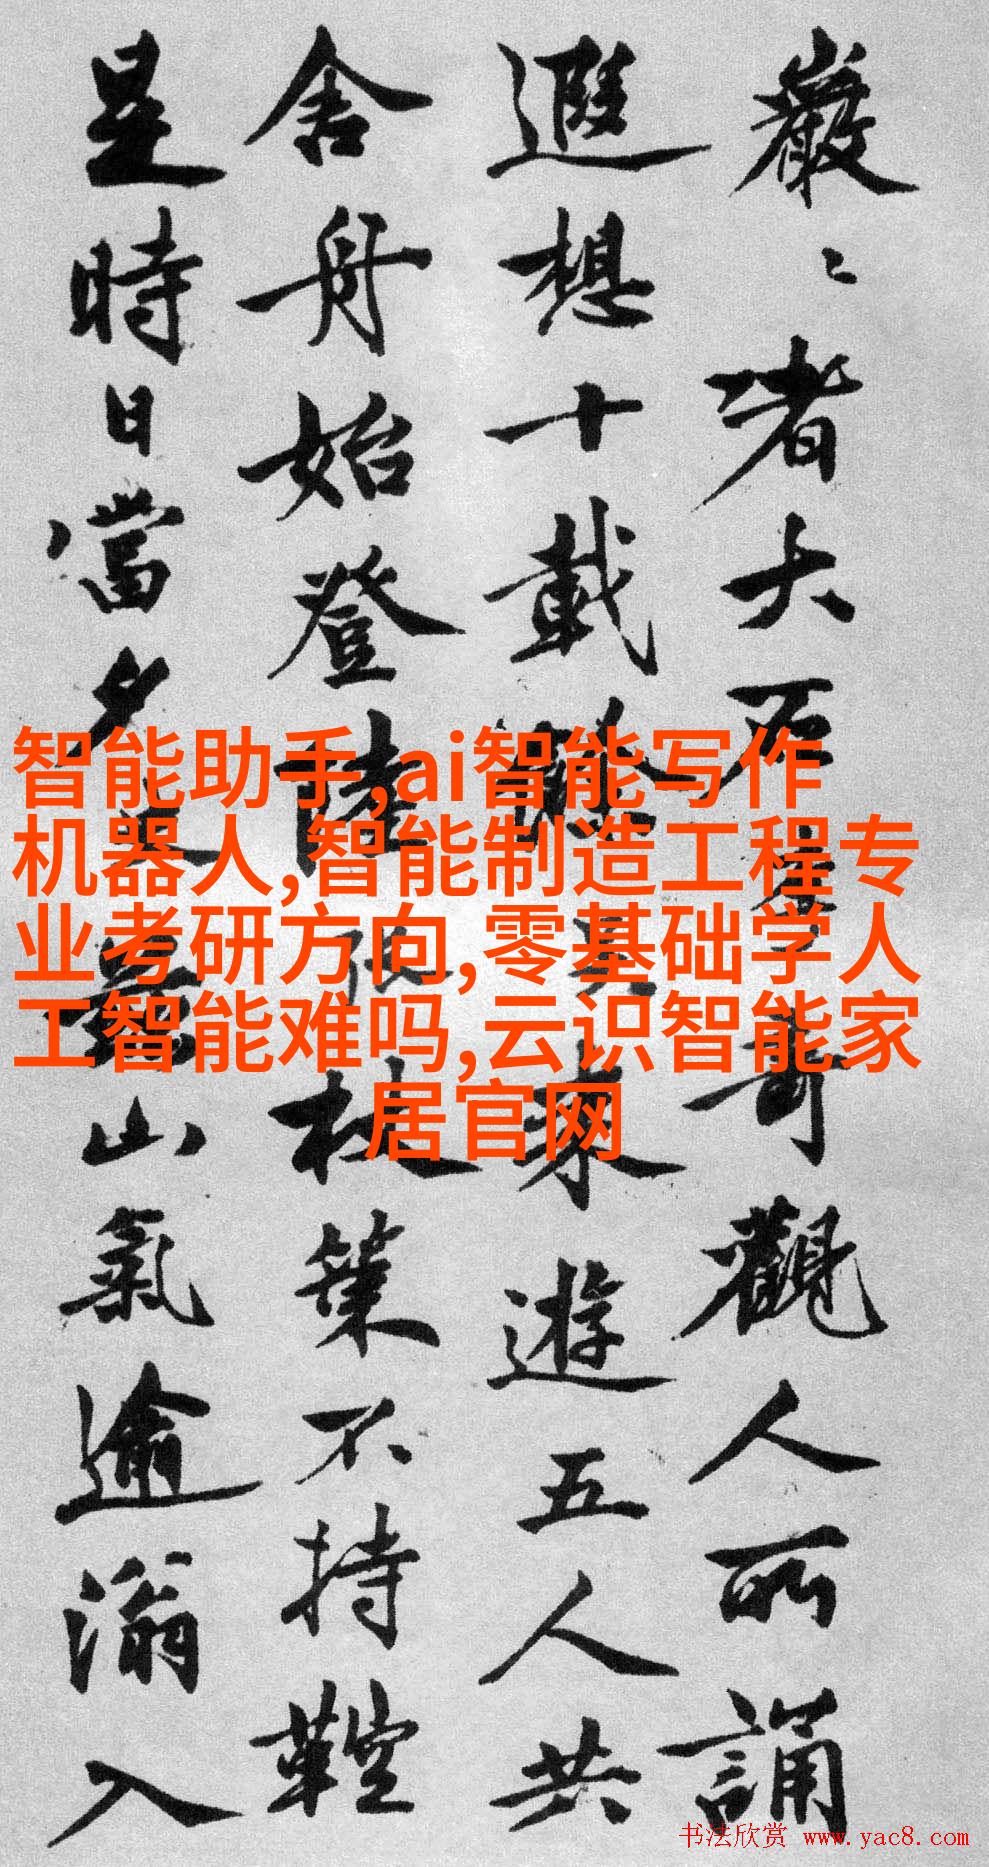 巖〻者大石奇觀人所誦
遐想十載來遊五人共
舍舟始登陸杖策不持鞚
是時日當夕山氣逾滃入
智能助手,ai智能写作
机器人,智能制造工程专
业考研方向,零基础学人
工智能难吗,云识智能家
居官网
书法欣赏 www.yac8.com